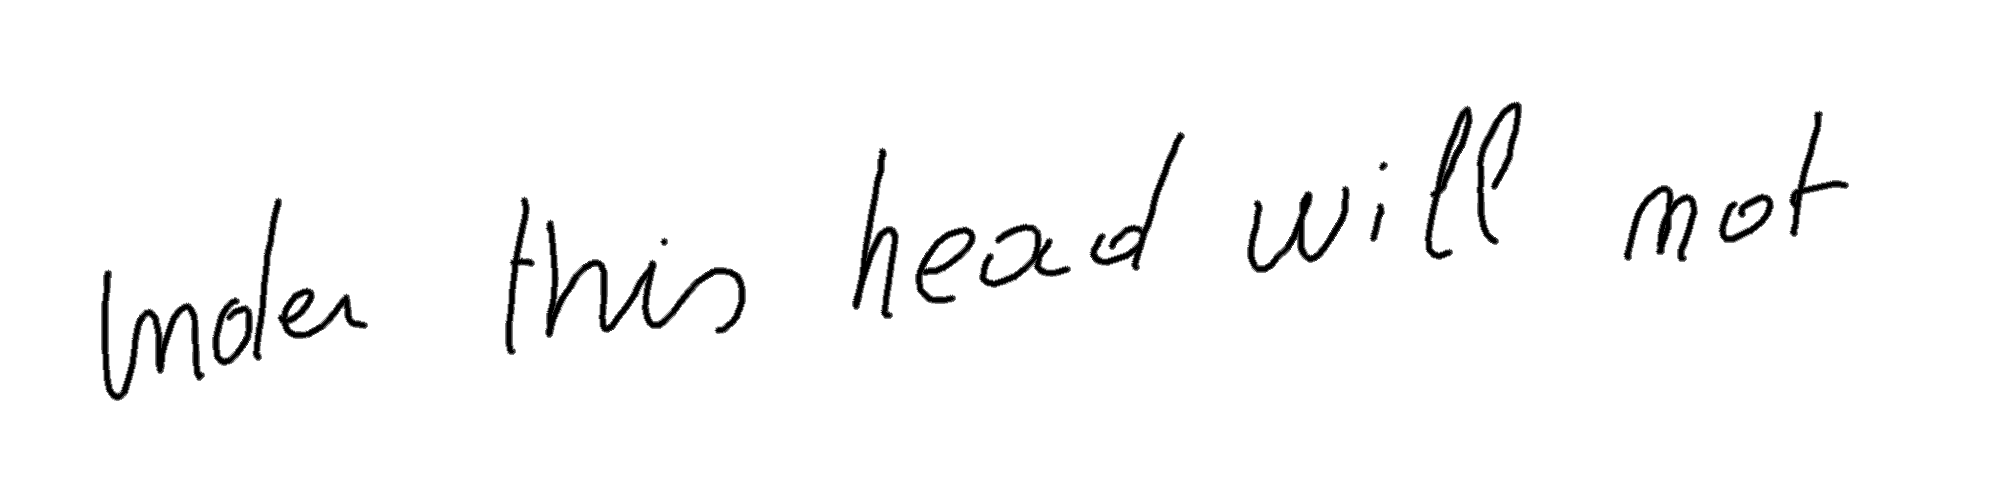 under this head will not